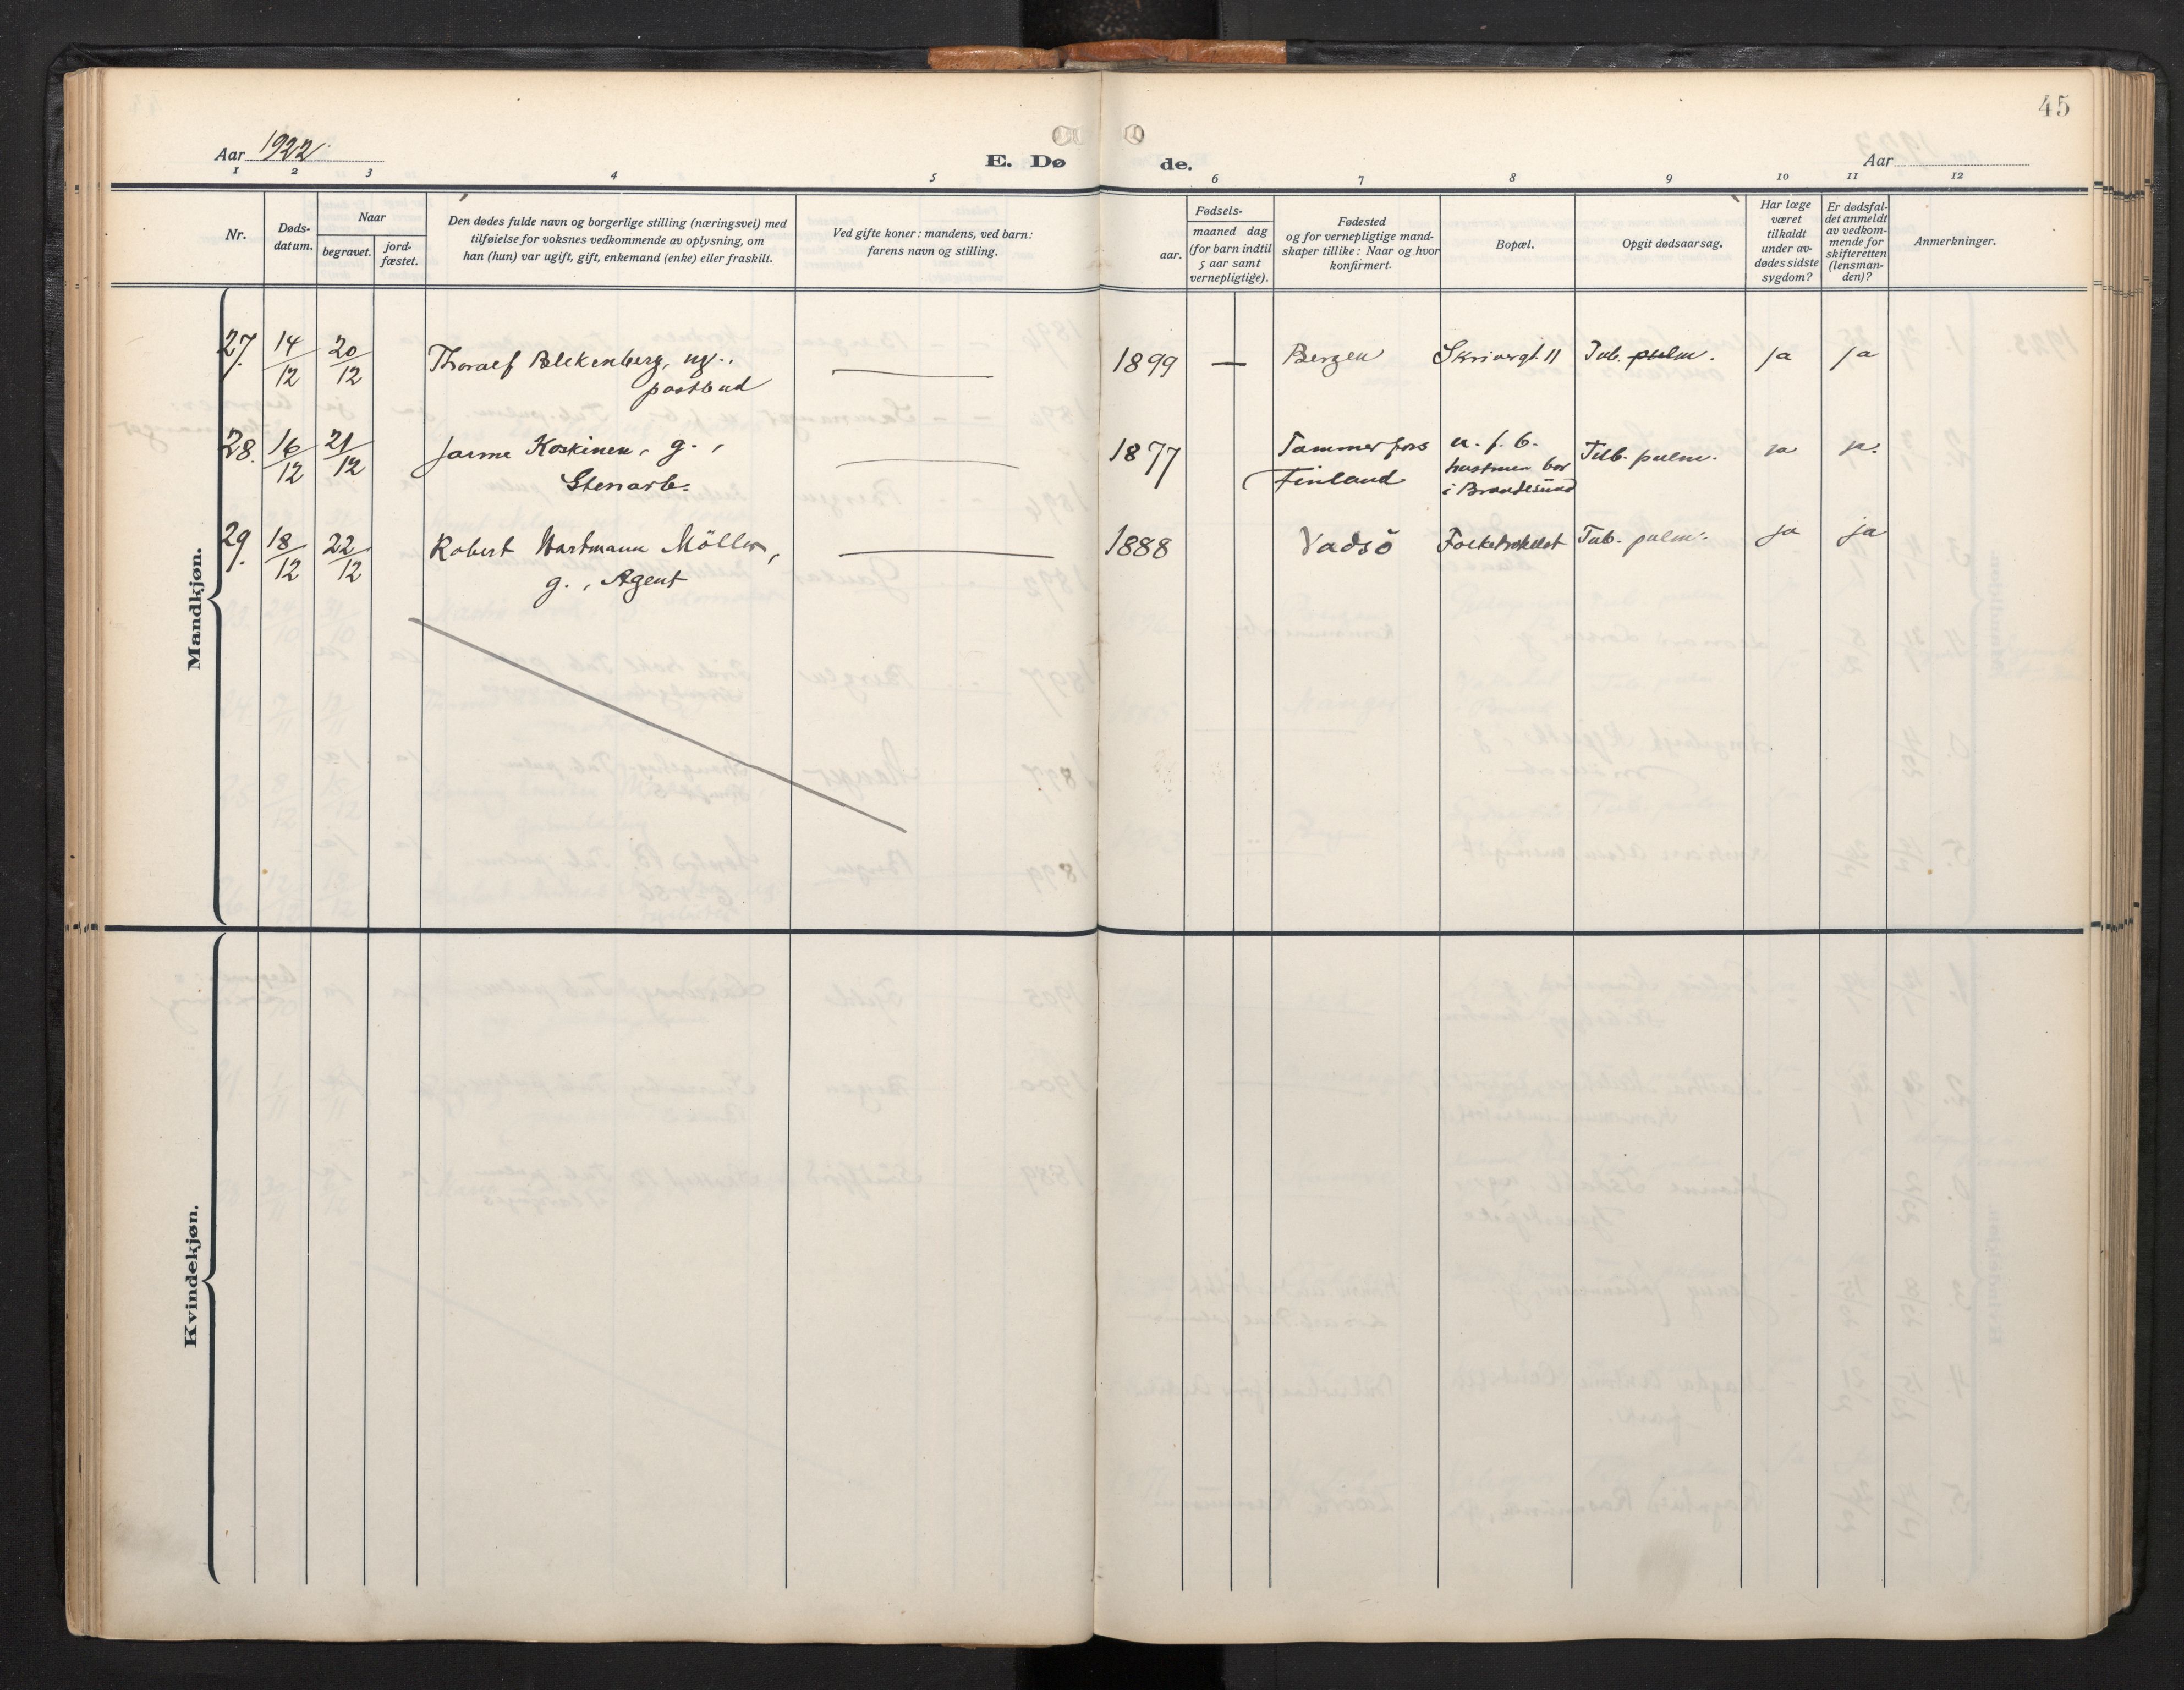 45
Aar 1922.
E. Dø de.
Aar
1 2 3 4 5 6 7 8 9 10 11 12
Nr.
Døds-
datum.
Naar
begravet.
jord-
fæstet.
Den dødes fulde navn og borgerlige stilling (næringsvei) med
tilføielse for voksnes vedkommende av oplysning, om
han (hun) var ugift, gift, enkemand (enke) eller fraskilt.
Ved gifte koner: mandens, ved barn:
farens navn og stilling.
Fødsels-
aar.
maaned dag
(for barn indtil
5 aar samt
vernepligtige).
Fødested
og for vernepligtige mand-
skaper tillike: Naar og hvor
konfirmert.
Bopæl.
Opgit dødsaarsag.
Har læge
været
tilkaldt
under av-
dødes sidste
sygdom?
Er dødsfal-
det anmeldt
av vedkom-
mende for
skifteretten
(lensman-
den)?
Anmerkninger.
Mandkjøn.
27. 14/12 20/12 Thoralf Blekenberg, ug., 1899 — Bergen Skrivergt. 11 Tub. pulm. ja ja
postbud
28. 16/12 21/12 Jarme Koskinen, g., 1877 Tammerfors u. f. b. Tub. pulm. ja ja.
Stenarb. Finland hustruen bor
i Brandesund
29. 18/12 22/12 Robert Hartmann Möller, 1888 Vadsö Tub. pulm. ja ja
g., Agent
Kvindekjøn.